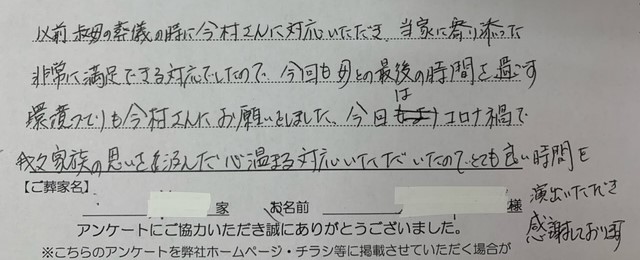 以前叔母の葬儀の時に今村さんに対応いただき、当家に寄り添った
非常に満足できる対応でしたので、今回も母との最後の時間を過ごす
環境づくりも今村さんにお願いをしました。今回は コロナ禍で
我々家族の思いを汲んだ心温まる対応いただいたのでとても良い時間を
演出いただき
感謝しております
【ご葬家名】
家 お名前 様
アンケートにご協力いただき誠にありがとうございました。
※こちらのアンケートを弊社ホームページ・チラシ等に掲載させていただく場合が